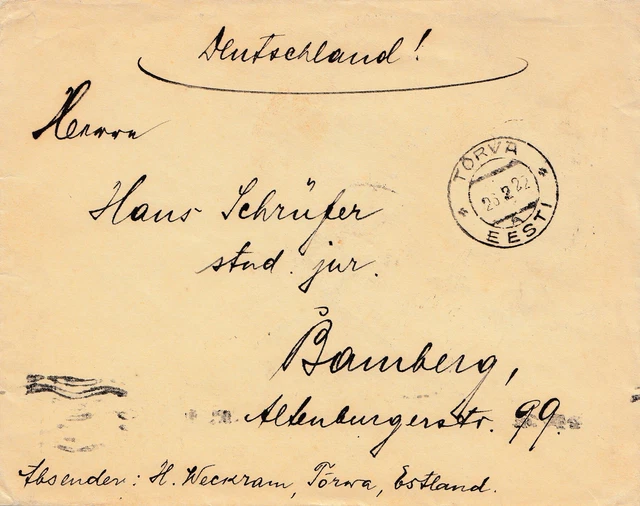 Deutschland!
Herrn
Hans Schrüfer
stud. jur.
Bamberg,
Altenburgerstr. 99.
Absender: H. Weckram, Törwa, Estland.
TÕRVA
26 2 22
A
EESTI